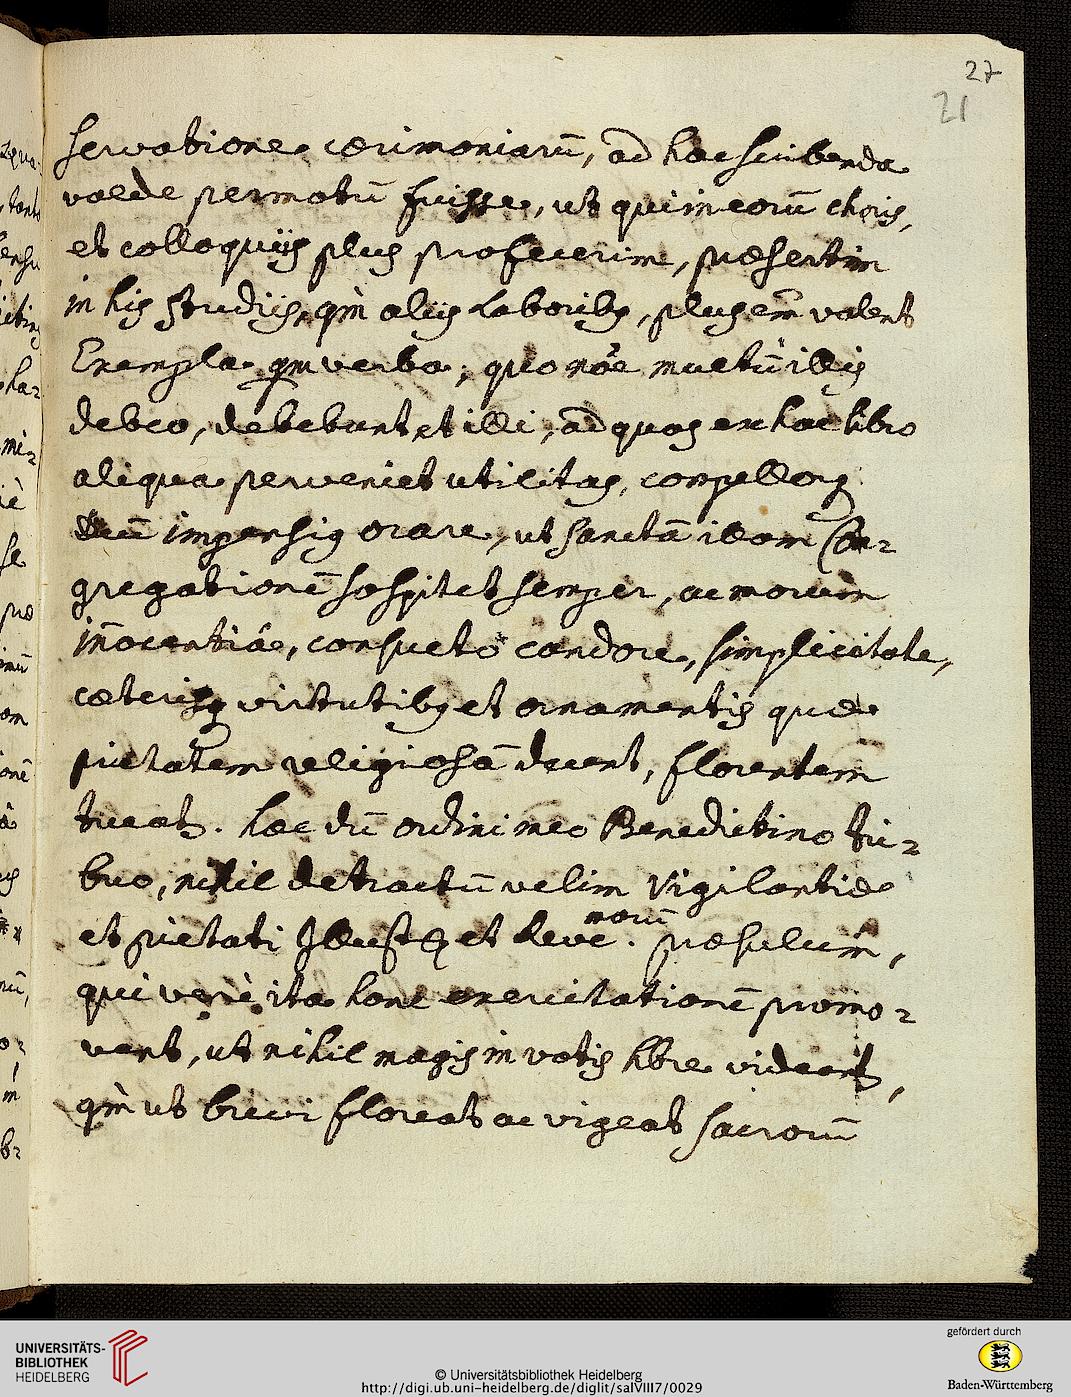 27
21
servatione cærimoniarū, ad hæc scribenda
valde permotū fuisse, ut qui in eorū choris,
et colloquiis plus profecerim, præsertim
in his studiis, qm̀ aliis laboribȝ, plus em̄ valent
Exempla qm verba, quo noīe multū illis
debeo, debebunt et illi, ad quos ex hoc libro
aliqua perveniet utilitas, compellorqȝ
Deū impensius orare, ut sanctā illam Con-
gregationē sospitet semper, ac morum
īnocentiâ, consueto candore, simplicitate,
cæterisqȝ virtutibȝ et ornamentis quæ
pietatem religiosā decent, florentem
tueat. hæc dū ordini meo Benedictino tri-
buo, nihil detractū velim Vigilantiæ
et pietati Illust et Reve.morū præsulum,
qui verè ita hanc exercitationē promo-
vent, ut nihil magis in votis hr̄e videant,
qm̀ ut brevi floreat ac vigeat sacrorū
UNIVERSITÄTS-
BIBLIOTHEK
HEIDELBERG
© Universitätsbibliothek Heidelberg
http://digi.ub.uni-heidelberg.de/diglit/salVIII7/0029
gefördert durch
Baden-Württemberg